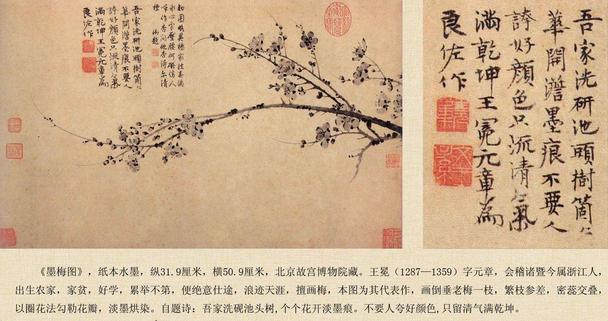 吾家洗研池頭樹箇〻
華開澹墨痕不要人
誇好顔色只流清氣
滿乾坤王冕元章爲
良佐作
吾家洗研池頭樹箇〻
華開澹墨痕不要人
誇好顔色只流清氣
滿乾坤王冕元章爲
良佐作
《墨梅图》，纸本水墨，纵31.9厘米，横50.9厘米，北京故宫博物院藏。王冕（1287—1359）字元章，会稽诸暨今属浙江人，
出生农家，家贫，好学，累举不第，便绝意仕途，浪迹天涯，擅画梅，本图为其代表作，画倒垂老梅一枝，繁枝参差，密蕊交叠，
以圈花法勾勒花瓣，淡墨烘染。自题诗：吾家洗砚池头树,个个花开淡墨痕。不要人夸好颜色,只留清气满乾坤。